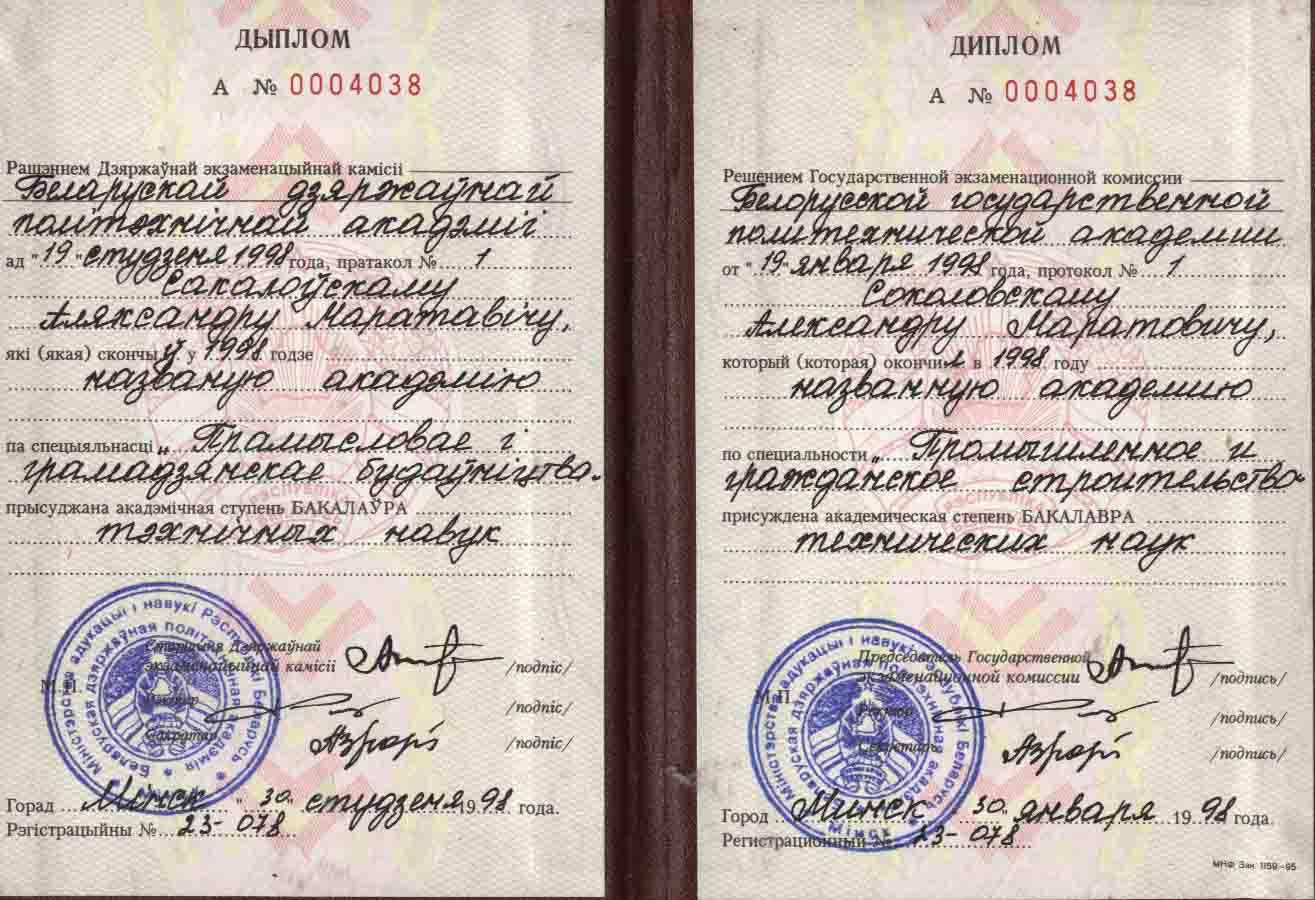 ДЫПЛОМ
А № 0004038
Рашэннем Дзяржаўнай экзаменацыйнай камісіі
Беларускай дзяржаўнай
політэхнічнай акадэміі
ад "19" студзеня 1998 года, пратакол № 1
Сакалоўскаму
Аляксандру Маратавічу,
які (якая) скончыў у 1998 годзе
названую акадэмію
па спецыяльнасці „Прамысловае і
грамадзянскае будаўніцтва"
прысуджана акадэмічная ступень БАКАЛАЎРА
тэхнічных навук
Старшыня Дзяржаўнай
экзаменацыйнай камісіі /подпіс/
М.П.
Рэктар /подпіс/
Сакратар /подпіс/
Міністэрства адукацыі і навукі Рэспублікі Беларусь
Беларуская дзяржаўная політэхнічная акадэмія
Горад Мінск "30" студзеня 1998 года.
Рэгістрацыйны № 23-078
ДИПЛОМ
А № 0004038
Решением Государственной экзаменационной комиссии
Белорусской государственной
политехнической академии
от "19" января 1998 года, протокол № 1
Соколовскому
Александру Маратовичу,
который (которая) окончил в 1998 году
названную академию
по специальности „Промышленное и
гражданское строительство"
присуждена академическая степень БАКАЛАВРА
технических наук
Председатель Государственной
экзаменационной комиссии /подпись/
М.П.
Ректор /подпись/
Секретарь /подпись/
Міністэрства адукацыі і навукі Рэспублікі Беларусь
Беларуская дзяржаўная політэхнічная акадэмія
Мінск
Город Минск "30" января 1998 года.
Регистрационный № 23-078
МНФ Зак. 1159-95